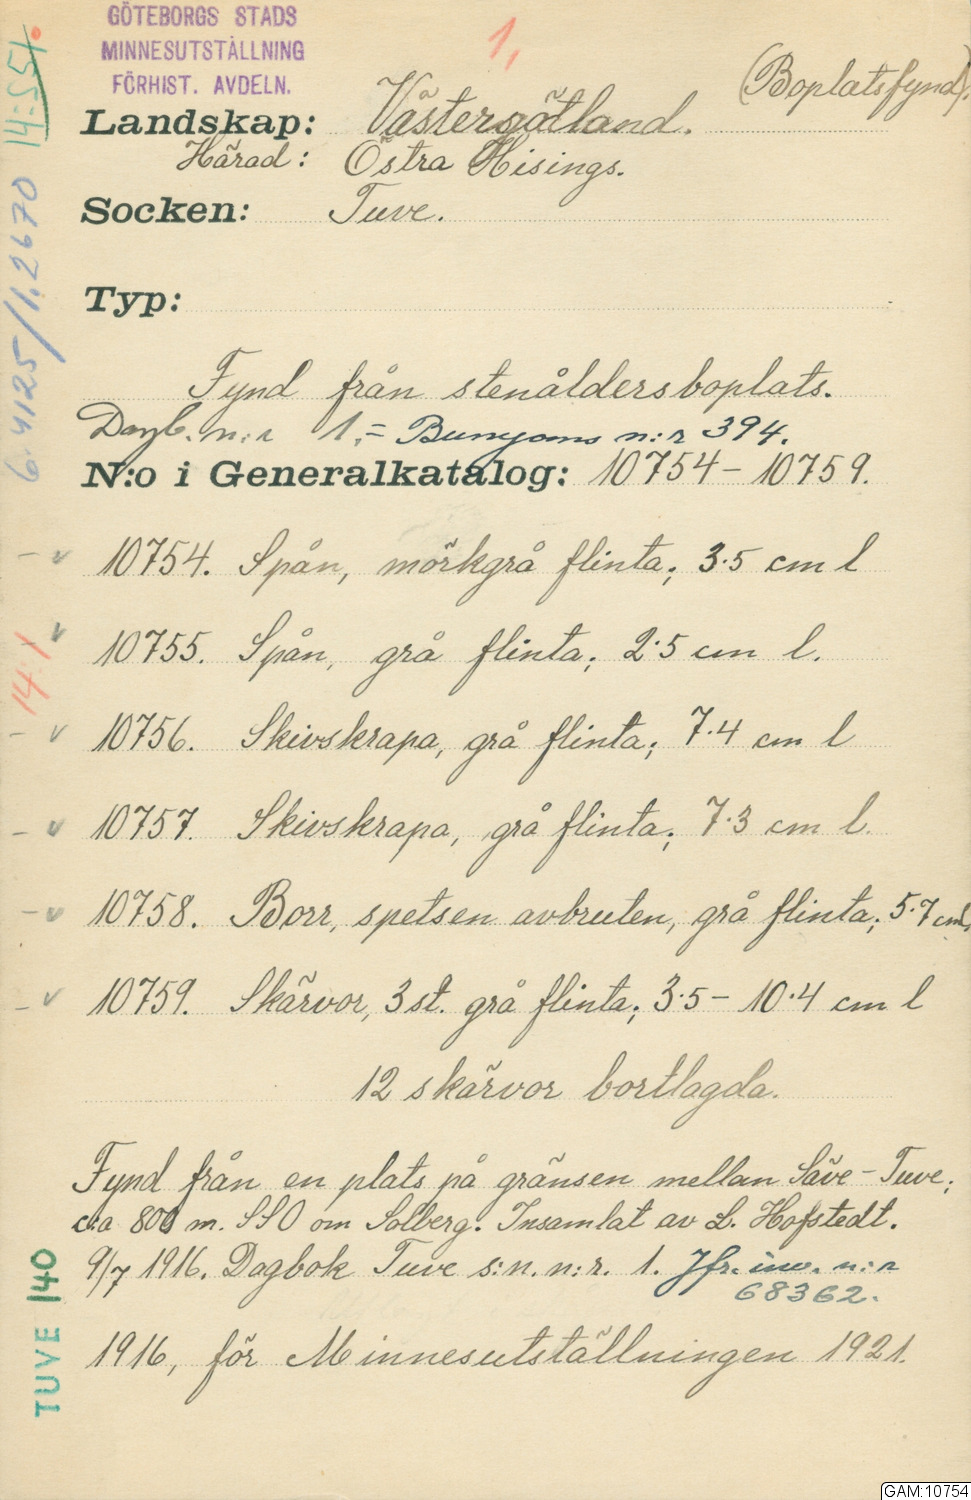 GÖTEBORGS STADS
MINNESUTSTÄLLNING
FÖRHIST. AVDELN.
1,
(Boplatsfynd).
14:551.
Landskap: Västergötland.
Härad: Östra Hisings.
Socken: Tuve.
6.4125/1.2670
Typ:
Fynd från stenåldersboplats.
Dagb. n:r 1. = Bunyoms n:r 394.
N:o i Generalkatalog: 10754 - 10759.
- v 10754. Spån, mörkgrå flinta; 3.5 cm l
v 10755. Spån, grå flinta; 2.5 cm l.
14:1
- v 10756. Skivskrapa, grå flinta; 7.4 cm l
- v 10757. Skivskrapa, grå flinta; 7.3 cm l.
- v 10758. Borr, spetsen avbruten, grå flinta; 5.7 cm l.
- v 10759. Skärvor, 3 st. grå flinta; 3.5 - 10.4 cm l
12 skärvor bortlagda.
Fynd från en plats på gränsen mellan Säve - Tuve;
c:a 800 m. SSO om Solberg. Insamlat av L. Hofstedt.
9/7 1916. Dagbok Tuve s:n. n:r. 1. Jfr. inv. n:r
68362.
TUVE 140
1916, för Minnesutställningen 1921.
GAM:10754